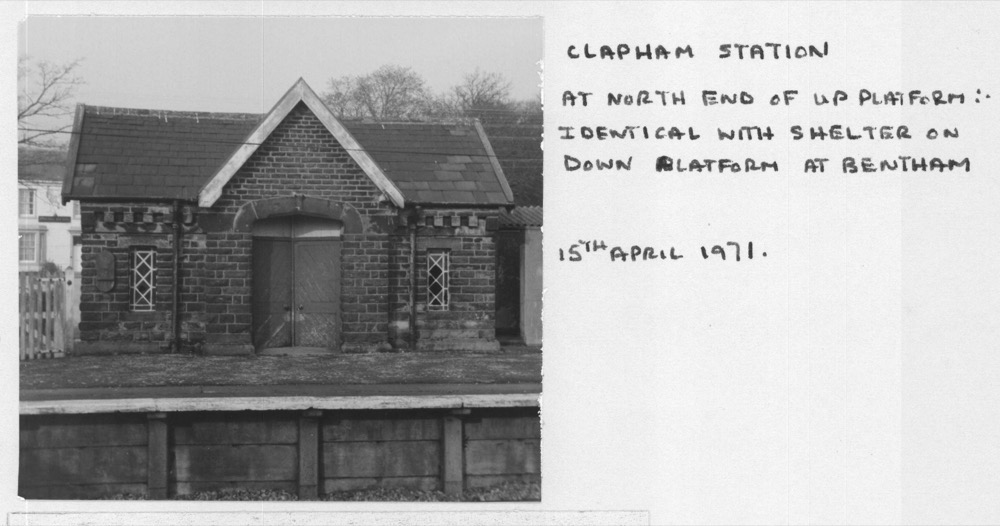 CLAPHAM STATION
AT NORTH END OF UP PLATFORM :-
IDENTICAL WITH SHELTER ON
DOWN PLATFORM AT BENTHAM
15TH APRIL 1971.